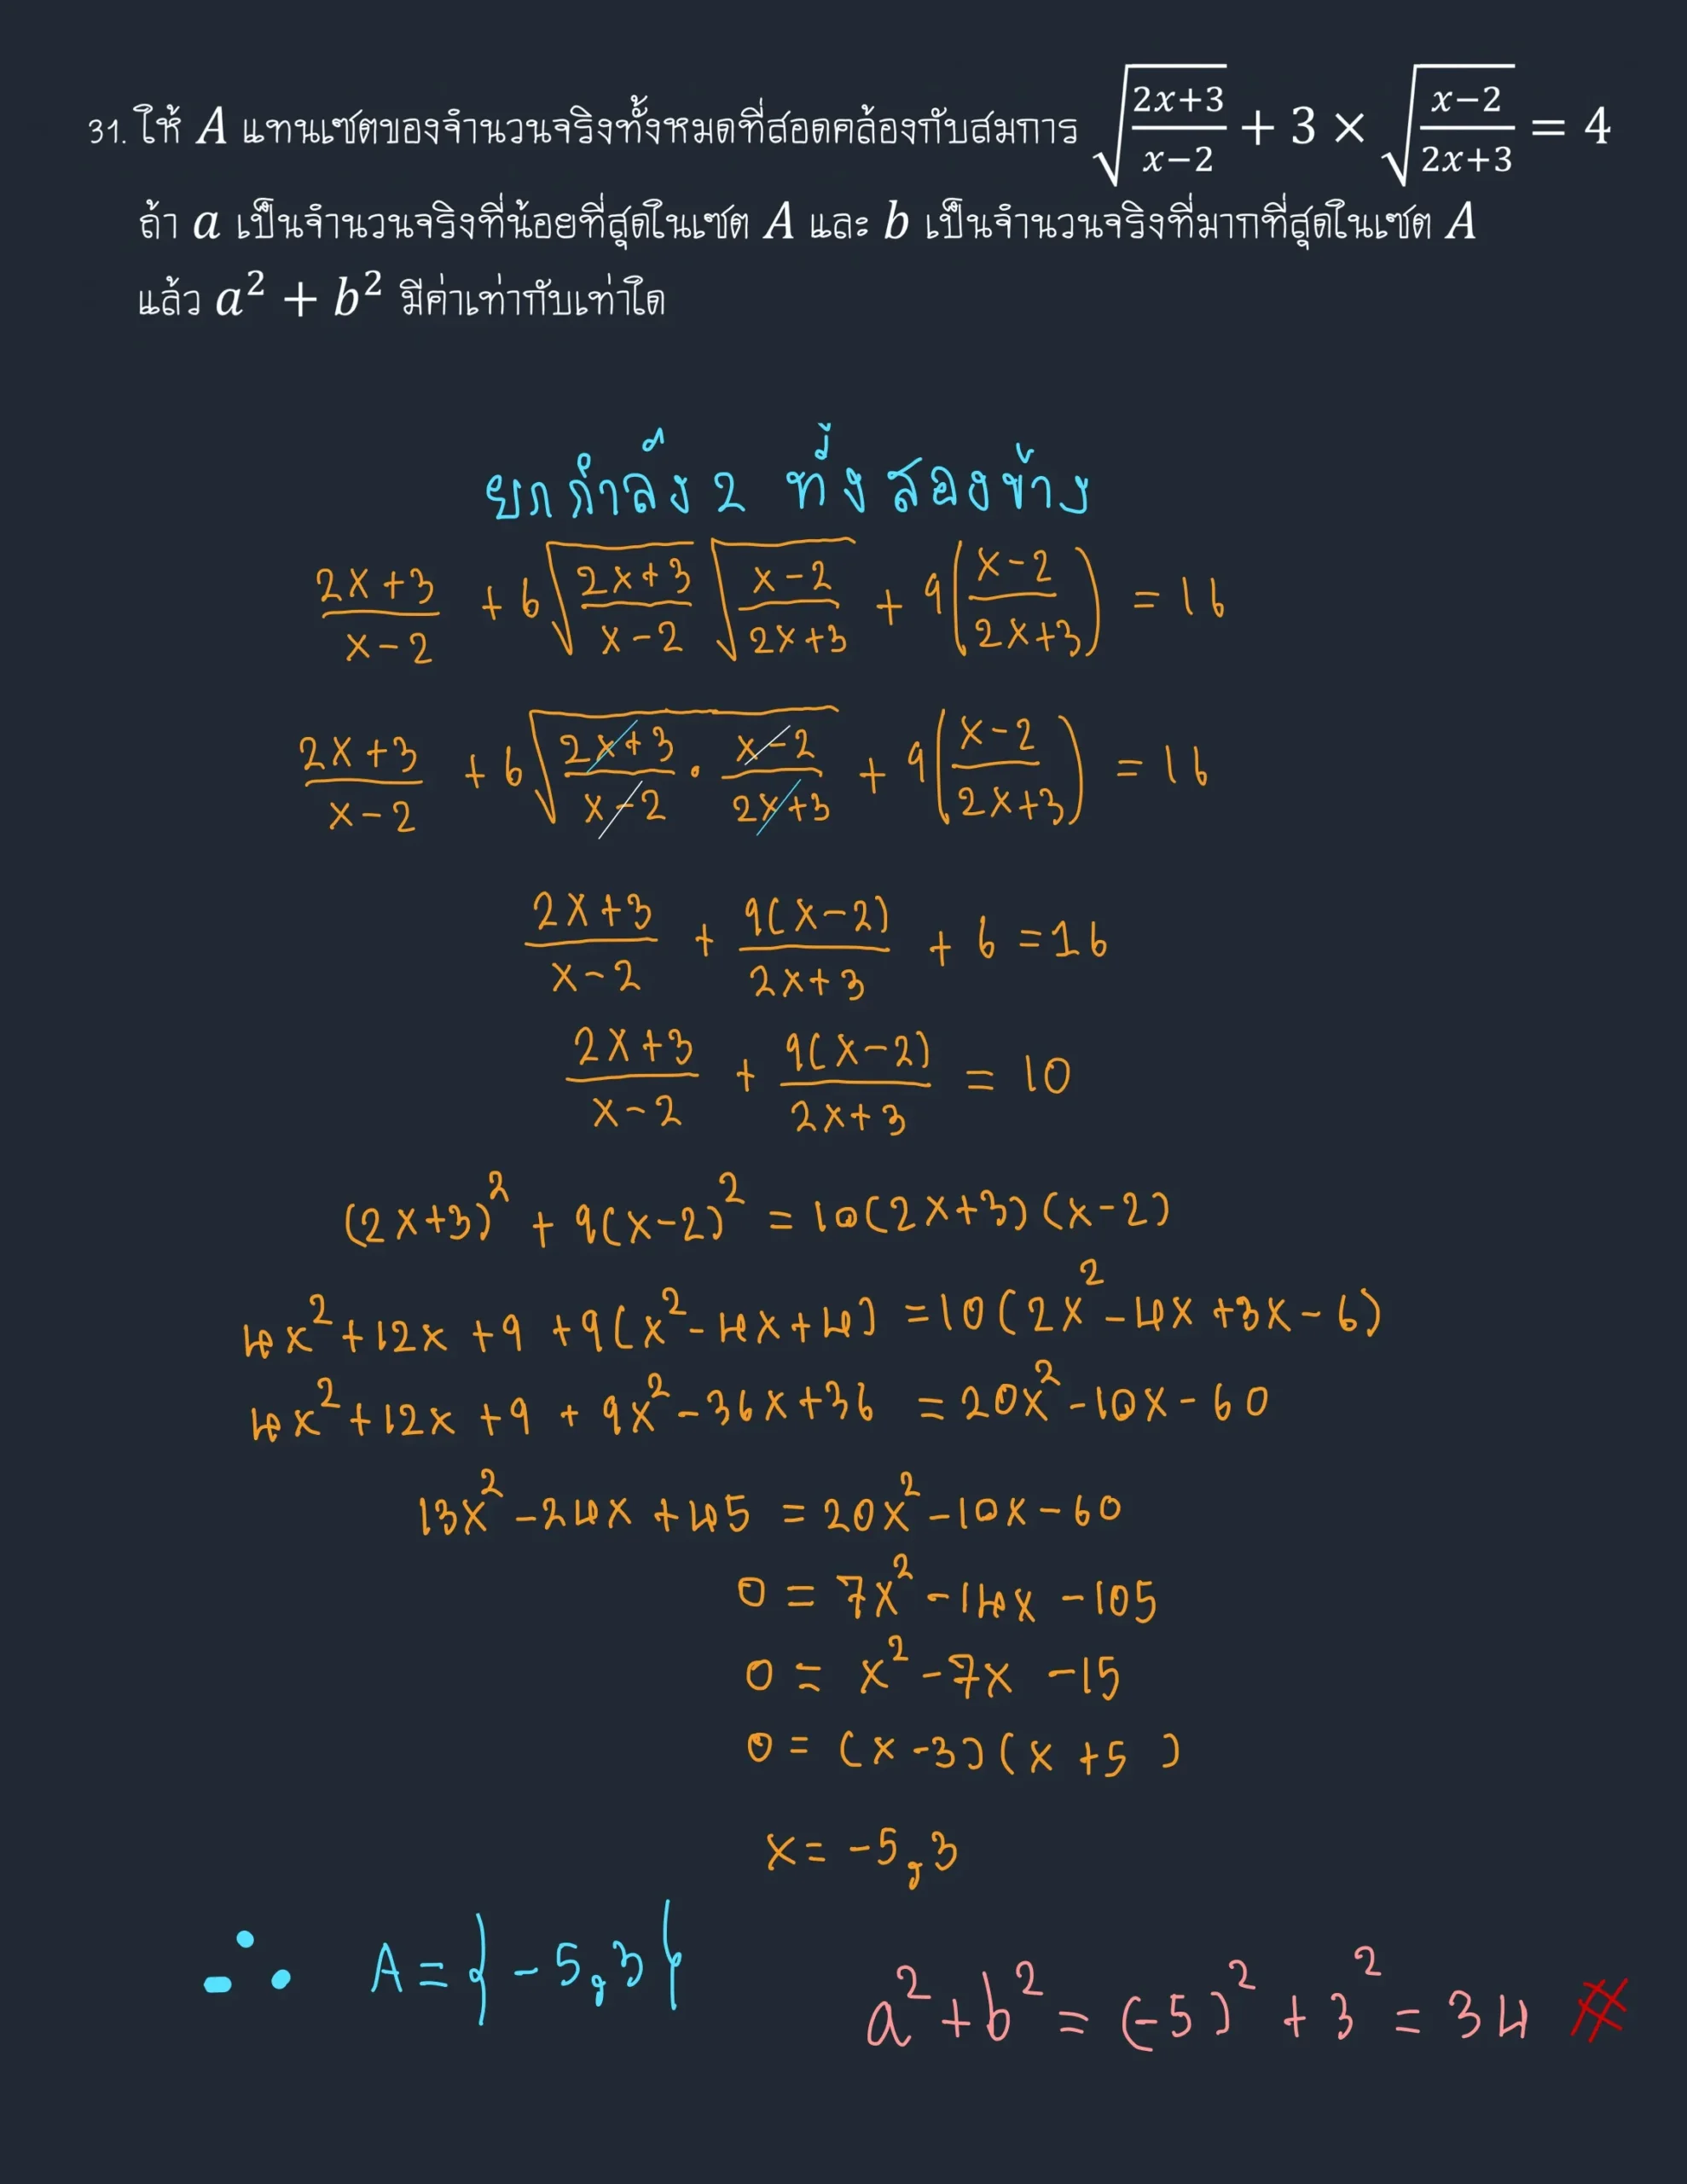 31. ให้ A แทนเซตของจำนวนจริงทั้งหมดที่สอดคล้องกับสมการ √((2x+3)/(x−2)) + 3 × √((x−2)/(2x+3)) = 4
ถ้า a เป็นจำนวนจริงที่น้อยที่สุดในเซต A และ b เป็นจำนวนจริงที่มากที่สุดในเซต A
แล้ว a² + b² มีค่าเท่ากับเท่าใด
ยกกำลัง 2 ทั้งสองข้าง
(2x+3)/(x-2) + 6√((2x+3)/(x-2)) √((x-2)/(2x+3)) + 9((x-2)/(2x+3)) = 16
(2x+3)/(x-2) + 6√((2x+3)/(x-2) · (x-2)/(2x+3)) + 9((x-2)/(2x+3)) = 16
(2x+3)/(x-2) + 9(x-2)/(2x+3) + 6 = 16
(2x+3)/(x-2) + 9(x-2)/(2x+3) = 10
(2x+3)² + 9(x-2)² = 10(2x+3)(x-2)
4x² + 12x + 9 + 9(x² - 4x + 4) = 10(2x² - 4x + 3x - 6)
4x² + 12x + 9 + 9x² - 36x + 36 = 20x² - 10x - 60
13x² - 24x + 45 = 20x² - 10x - 60
0 = 7x² - 14x - 105
0 = x² - 7x - 15
0 = (x - 3)(x + 5)
x = -5, 3
∴ A = {-5, 3} a² + b² = (-5)² + 3² = 34 #